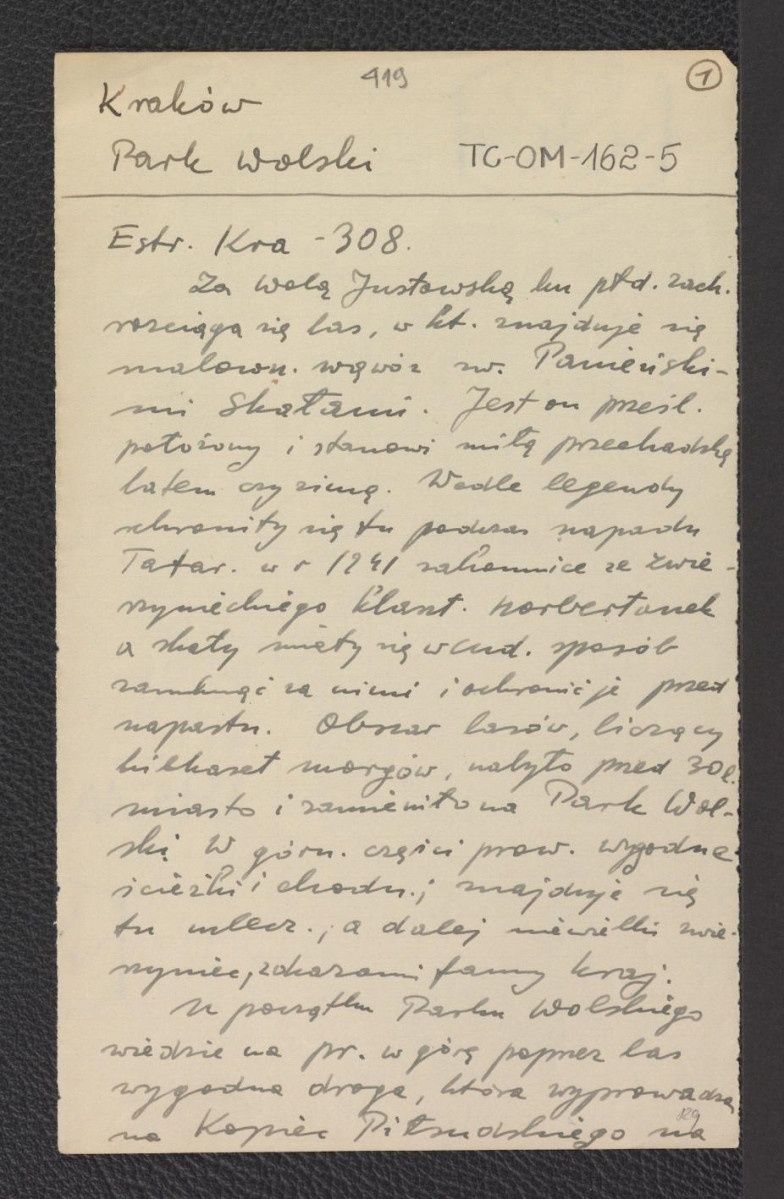 419
1
Kraków
Park Wolski TC-OM-162-5
Estr. Kra - 308.
Za Wolą Justowską ku płd. zach.
rozciąga się las, w kt. znajduje się
malown. wąwóz zw. Panieński-
mi Skałami. Jest on prześl.
położony i stanowi miłą przechadzkę
latem czy zimą. Wedle legendy
schroniły się tu podczas napadu
Tatar. w r 1241 zakonnice ze Zwie-
rzynieckiego klaszt. norbertanek
a skały miały się w cud. sposób
zamknąć za nimi i ochronić je przed
napastn. Obszar lasów, liczący
kilkaset morgów, nabyło przed 30 l.
miasto i zamieniło na Park Wol-
ski. W górn. części prow. wygodne
ścieżki i chodn.; znajduje się
tu mlecz., a dalej niewielki zwie-
rzyniec, z okazami fauny kraj.
U początku Parku Wolskiego
wiedzie na pr. w górę poprzez las
wygodna droga, która wyprowadza
na Kopiec Piłsudskiego na
129